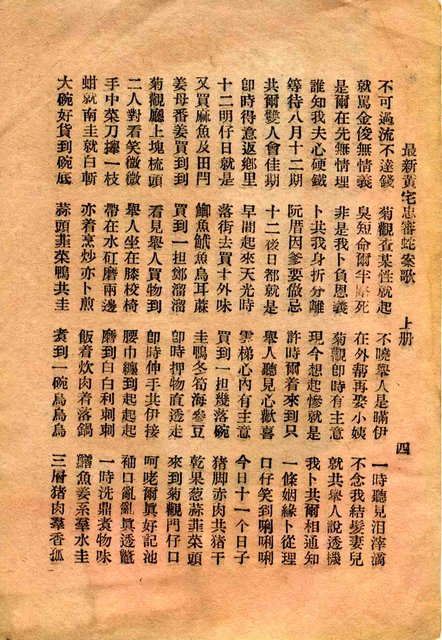 最新黃宅忠審蛇案歌 上册 四
不可過流不達錢 菊觀查某性就起 不曉舉人是瞞伊 一時聽見泪滓滴
就罵金俊無情義 臭短命爾半屢死 在外幇再娶小姨 不念我結髮妻兒
是爾在先無情理 非是我卜負恩義 菊觀卽時有主意 就共舉人說透機
誰知我夫心硬鐵 卜共我身折分離 現今想起慘就是 我卜共爾相通知
等待八月十二期 阮厝因爹要做忌 許時爾着來到只 一條姻緣卜從理
共爾雙人會佳期 十二後日都就是 舉人聽見心歡喜 口仔笑到唎唎唎
卽時得意返鄉里 早間起來天光時 雲梯心內有主意 今日十一个日子
十二明仔日就是 落街去買十外味 買到一担幾落碗 猪脚赤肉共猪干
又買麻魚及田門 鯽魚魷魚烏耳蔴 圭鴨冬筍海參豆 乾果葱蒜韮菜頭
姜母番姜買到到 買到一担鄉溜溜 卽時押物直透走 來到菊觀門仔口
菊觀廳上塊梳頭 看見舉人買物到 卽時伸手共伊接 呵咾爾眞好記池
二人對看笑微微 舉人坐在膝梭椅 腰巾纏到起起起 袖口亂亂眞透氅
手中菜刀攑一枝 帶在水矼磨兩邊 磨到白白利刺刺 一時洗鼎煮物味
蚶就南圭就白斬 亦着烹炒亦卜煎 飯着炊肉着落鍋 鱔魚姜糸羣水圭
大碗好貨到碗底 蒜頭韮菜鴨共圭 煮到一碗烏烏烏 三層猪肉羣香孤